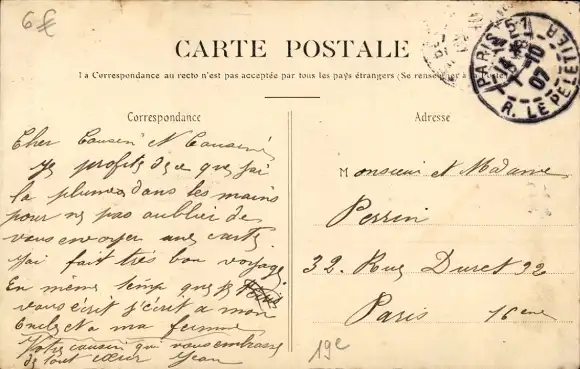 6 €
CARTE POSTALE
La Correspondance au recto n'est pas acceptée par tous les pays étrangers (Se renseigner à la Poste)
PARIS 51
7-10
07
R. LE PELETIER
Correspondance
Cher Cousin et Cousine
Je profite de ce que j'ai
la plume dans les mains
pour ne pas oublier de
vous envoyer une carte
J'ai fait très bon voyage
En même temps que je
vous écrit j'écrit a mon
Oncle et a ma femme
Votre cousin qui vous embrasse
de tout cœur Jean
Adresse
Monsieur et Madame
Perrin
32. Rue Duret 32
Paris 16eme
19e